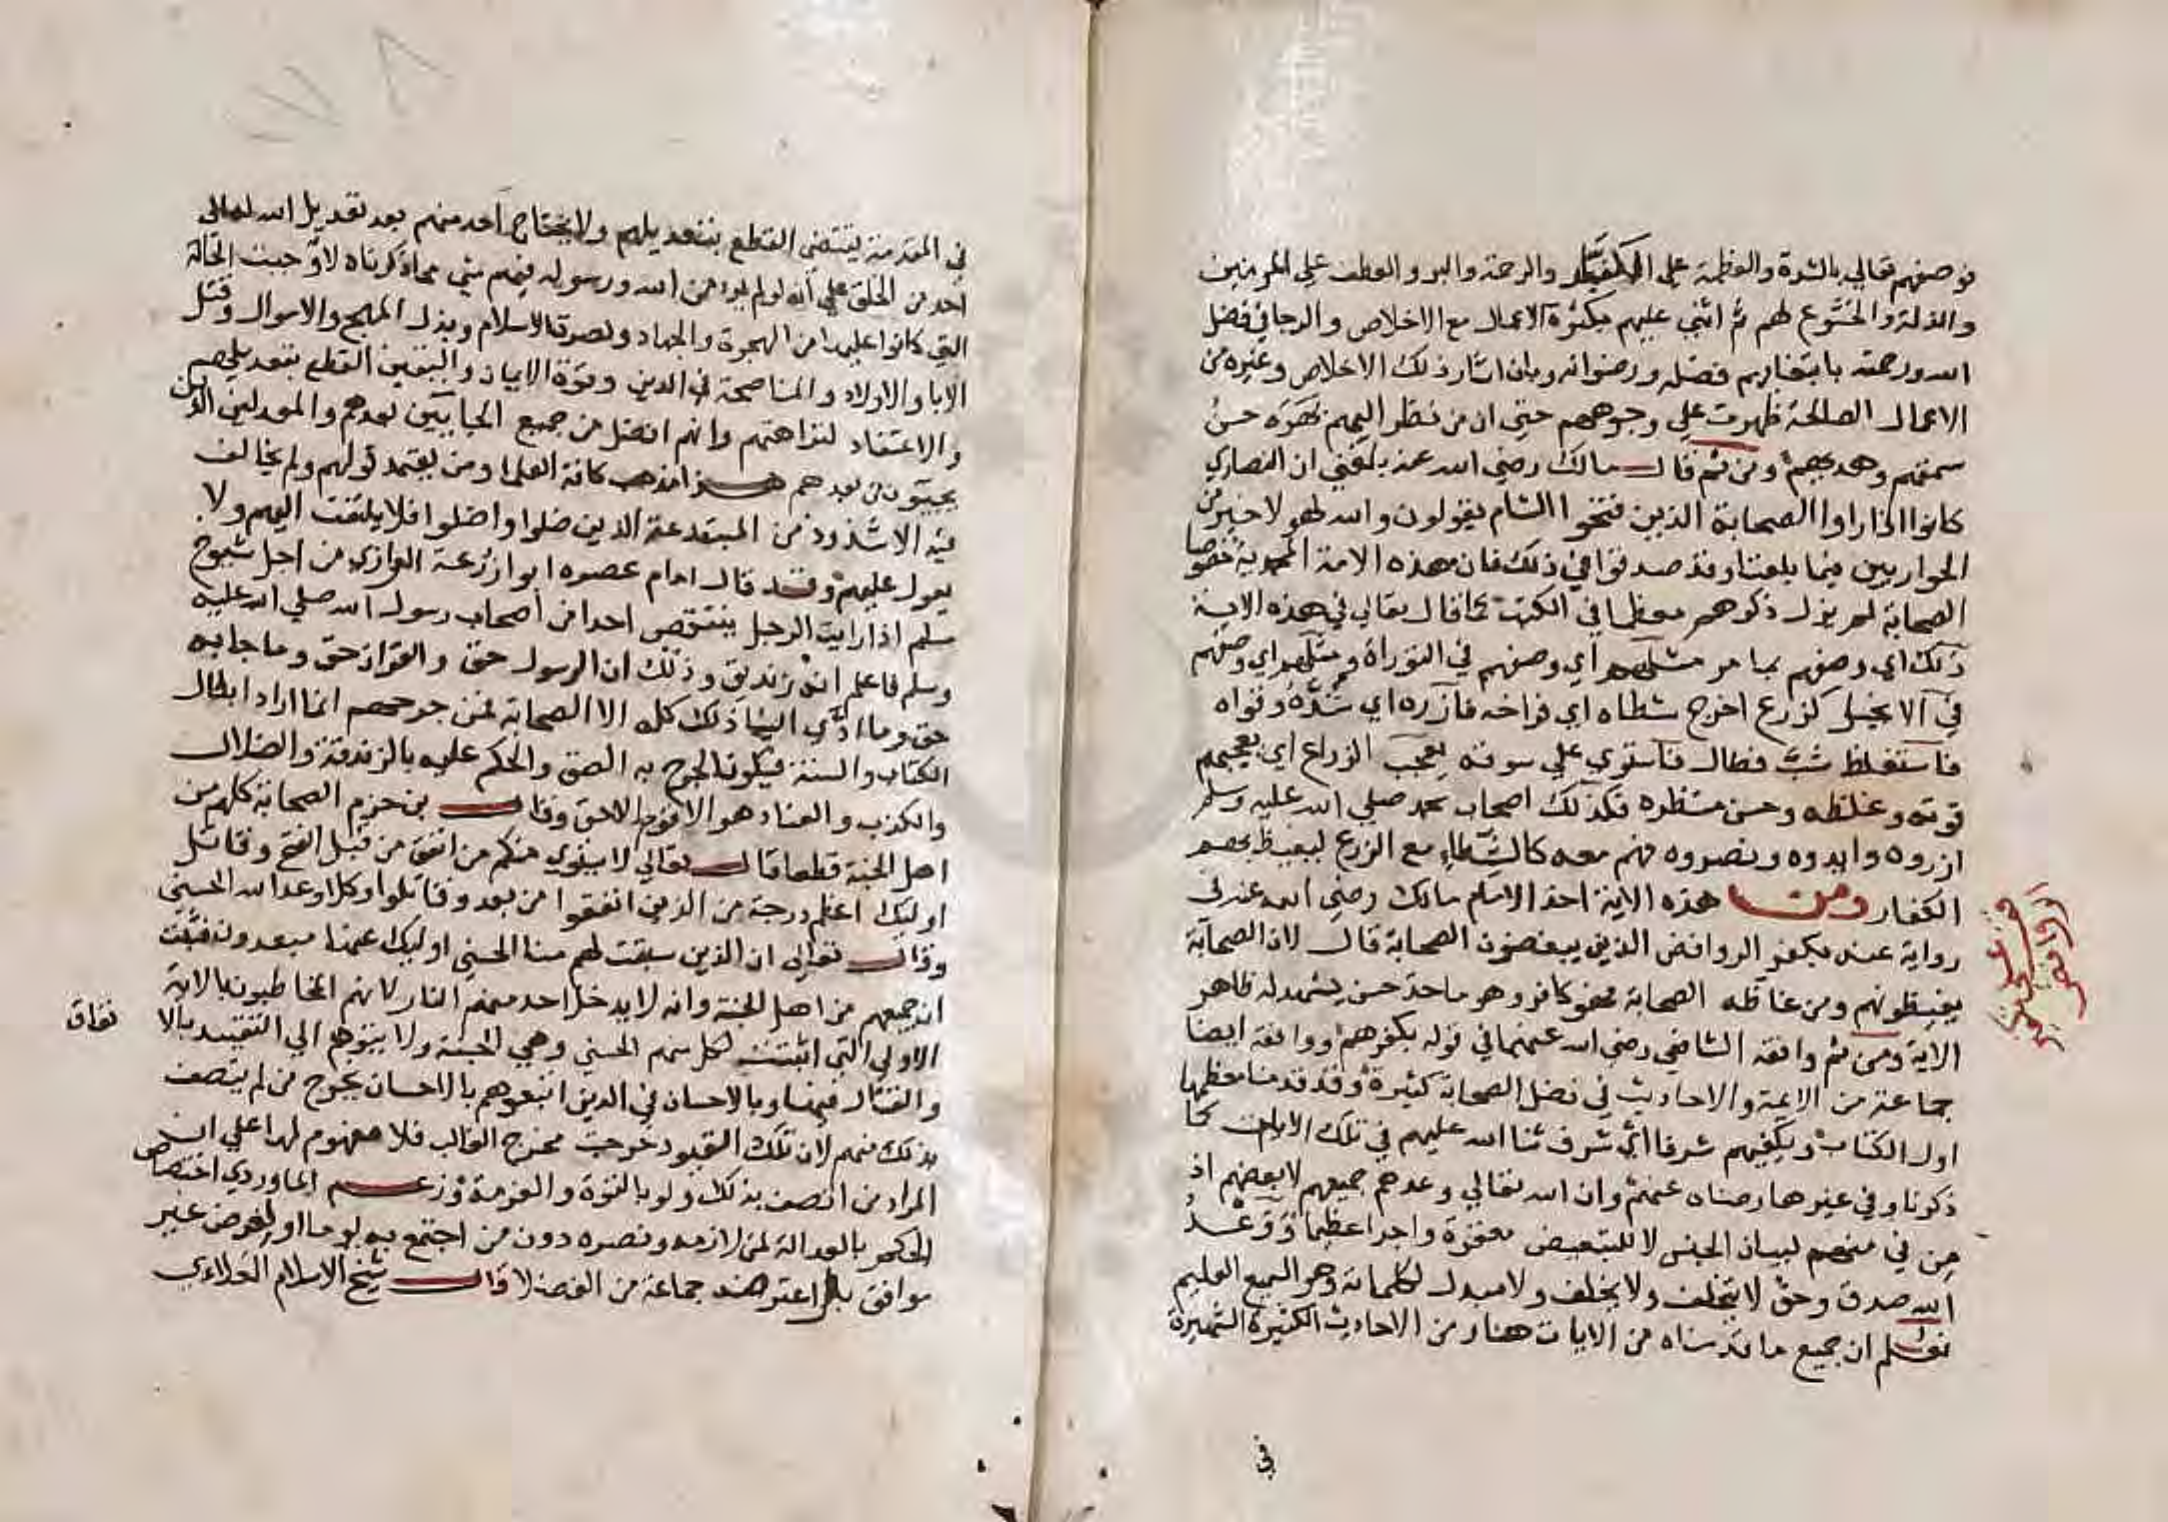 فوصفهم تعالي بالشدة والغلظة علي الكفار والرحمة والبر والعطف علي المومنين
والذلة والخشوع لهم ثم اثني عليهم بكثرة الاعمال مع الاخلاص والرجا في فضل
الله ورحمته بابتغايهم فضله ورضوانه وبان اثار ذلك الاخلاص وغيره من
الاعمال الصالحة ظهرت علي وجوههم حتي ان من نظر اليهم بهره حسن
سمتهم وهديهم ومن ثم قال مالك رضي الله عنه بلغني ان النصاري
كانوا اذا راوا الصحابة الذين فتحوا الشام يقولون والله لهولا خير من
الحواريين فيما بلغنا وقد صدقوا في ذلك فان هذه الامة المحمدية خصوصا
الصحابة لم يزل ذكرهم معظما في الكتب كما قال تعالي في هذه الاية
ذلك اي وصفهم بما مر مثلهم اي وصفهم في التوراة ومثلهم اي وصفهم
في الانجيل كزرع اخرج شطاه اي فراخه فازره اي شده وقواه
فاستغلظ شب فطال فاستوي علي سوقه يعجب الزراع اي يعجبهم
قوته وغلظه وحسن منظره فكذلك اصحاب محمد صلي الله عليه وسلم
ازروه وايدوه ونصروه فهم معه كالشطاء مع الزرع ليغيظ بهم
الكفار ومن هذه الاية اخذ الامام مالك رضي الله عنه في
رواية عنه بكفر الروافض الذين يبغضون الصحابة قال لان الصحابة
يغيظونهم ومن غاظه الصحابة فهو كافر وهو ماخذ حسن يشهد له ظاهر
الاية ومن ثم وافقه الشافعي رضي الله عنهما في قوله بكفرهم ووافقه ايضا
جماعة من الايمة والاحاديث في فضل الصحابة كثيرة وقد قدمنا معظمها
اول الكتاب ويكفيهم شرفا اي شرف ثنا الله عليهم في تلك الايات كما
ذكرنا وفي غيرها رضاه عنهم وان الله تعالي وعدهم جميعهم لا بعضهم اذ
من في منهم لبيان الجنس لا للتبعيض مغفرة واجرا عظيما ووعد
الله صدق وحق لا يتخلف ولا يخلف ولا مبدل لكلماته وهو السميع العليم
فعلم ان جميع ما قدمناه من الايات هنا ومن الاحاديث الكثيرة الشهيرة
في
في المقدمة يقتضي القطع بتعديلهم ولا يحتاج احد منهم بعد تعديل الله تعالي
احد من الخلق علي انه لو لم يرد من الله ورسوله فيهم شي مما ذكرناه لاوجبت الحالة
التي كانوا عليها من الهجرة والجهاد ونصرة الاسلام وبذل المهج والاموال وقتل
الابا والاولاد والمناصحة في الدين وقوة الايمان واليقين القطع بتعديلهم
والاعتقاد لنزاهتهم وانهم افضل من جميع الجايين بعدهم والمعدلين الذين
يجيون من بعدهم هذا مذهب كافة العلما ومن يعتمد قولهم ولم يخالف
فيه الا شذوذ من المبتدعة الذين ضلوا واضلوا فلا يلتفت اليهم ولا
يعول عليهم وقد قال امام عصره ابوا زرعة الرازي من اجل شيوخ
مسلم اذا رايت الرجل ينتقص احدا من اصحاب رسول الله صلي الله عليه
وسلم فاعلم انه زنديق وذلك ان الرسول حق والقران حق وما جا به
حق وما ادي الينا ذلك كله الا الصحابة فمن جرحهم انما اراد ابطال
الكتاب والسنة فيكون الجرح به الصق والحكم عليه بالزندقة والضلال
والكذب والعناد هو الاقوم الاحق وقال بن حزم الصحابة كلهم من
اهل الجنة قطعا قال تعالي لا يستوي منكم من انفق من قبل الفتح وقاتل
اوليك اعظم درجة من الذين انفقوا من بعد وقاتلوا وكلا وعد الله الحسني
وقال تعالي ان الذين سبقت لهم منا الحسني اوليك عنها مبعدون فثبت
ان جميعهم من اهل الجنة وانه لا يدخل احد منهم النار لانهم المخاطبون بالاية
الاولي التي اثبتت لكل منهم الحسني وهي الجنة ولا يتوهم ان التقييد بالا
نفاق
والقتال فيها وبالاحسان في الذين اتبعوهم بالاحسان يخرج من لم يتصف
بذلك منهم لان تلك القيود خرجت مخرج الغالب فلا مفهوم لها علي ان
المراد من اتصف بذلك ولو بالقوة والعزمة وزعم الماوردي اختصاص
الحكم بالعدالة لمن لازمه ونصره دون من اجتمع به يوما او لغرض غير
موافق بل اعترضه جماعة من الفضلا قال شيخ الاسلام العلاءي